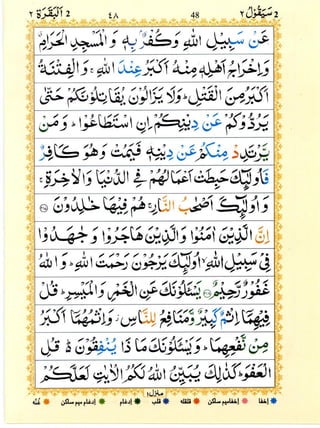 سَيَقُوْلُ ٢ 48 ٤٨ اَلْبَقَرَة ٢
عَنْ سَبِيْلِ اللّٰهِ وَكُفْرٌۢ بِهٖ وَالْمَسْجِدِ الْحَرَامِۗ
وَاِخْرَاجُ اَهْلِهٖ مِنْهُ اَكْبَرُ عِنْدَ اللّٰهِۚ وَالْفِتْنَةُ
اَكْبَرُ مِنَ الْقَتْلِؕ وَلَا يَزَالُوْنَ يُقَاتِلُوْنَكُمْ حَتّٰى
يَرُدُّوْكُمْ عَنْ دِيْنِكُمْ اِنِ اسْتَطَاعُوْاؕ وَمَنْ
يَّرْتَدِدْ مِنْكُمْ عَنْ دِيْنِهٖ فَيَمُتْ وَهُوَ كَافِرٌ
فَاُولٰٓئِكَ حَبِطَتْ اَعْمَالُهُمْ فِى الدُّنْيَا وَالْاٰخِرَةِۚ
وَاُولٰٓئِكَ اَصْحٰبُ النَّارِۚ هُمْ فِيْهَا خٰلِدُوْنَ
اِنَّ الَّذِيْنَ اٰمَنُوْا وَالَّذِيْنَ هَاجَرُوْا وَجٰهَدُوْا
فِىْ سَبِيْلِ اللّٰهِۙ اُولٰٓئِكَ يَرْجُوْنَ رَحْمَتَ اللّٰهِؕ وَاللّٰهُ
غَفُوْرٌ رَّحِيْمٌ يَسْـَٔلُوْنَكَ عَنِ الْخَمْرِ وَالْمَيْسِرِؕ قُلْ
فِيْهِمَاۤ اِثْمٌ كَبِيْرٌ وَّمَنَافِعُ لِلنَّاسِؗ وَاِثْمُهُمَاۤ اَكْبَرُ
مِنْ نَّفْعِهِمَاؕ وَيَسْـَٔلُوْنَكَ مَاذَا يُنْفِقُوْنَ ؕ قُلِ
الْعَفْوَؕ كَذٰلِكَ يُبَيِّنُ اللّٰهُ لَكُمُ الْاٰيٰتِ لَعَلَّكُمْ
منزل ١
اخفا اخفا میم ساکن قلقلہ قلب ادغام ادغام میم ساکن غنہ